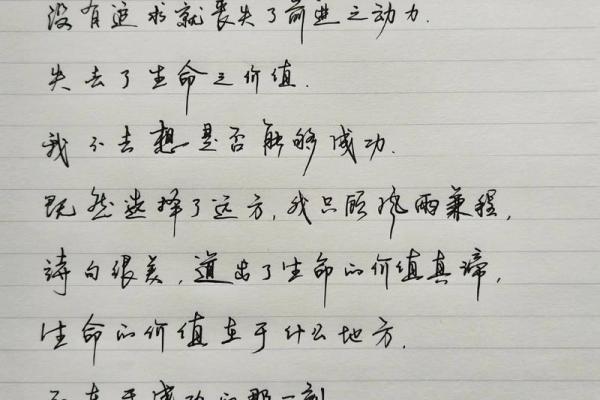 没有追求就丧失了前进之动力.
失去了生命之价值.
我不去想是否能够成功.
既然选择了远方,我只顾风雨兼程,
诗句很美,道出了生命的价值真谛,
生命的价值在于什么地方.
不在于成功的那一刻